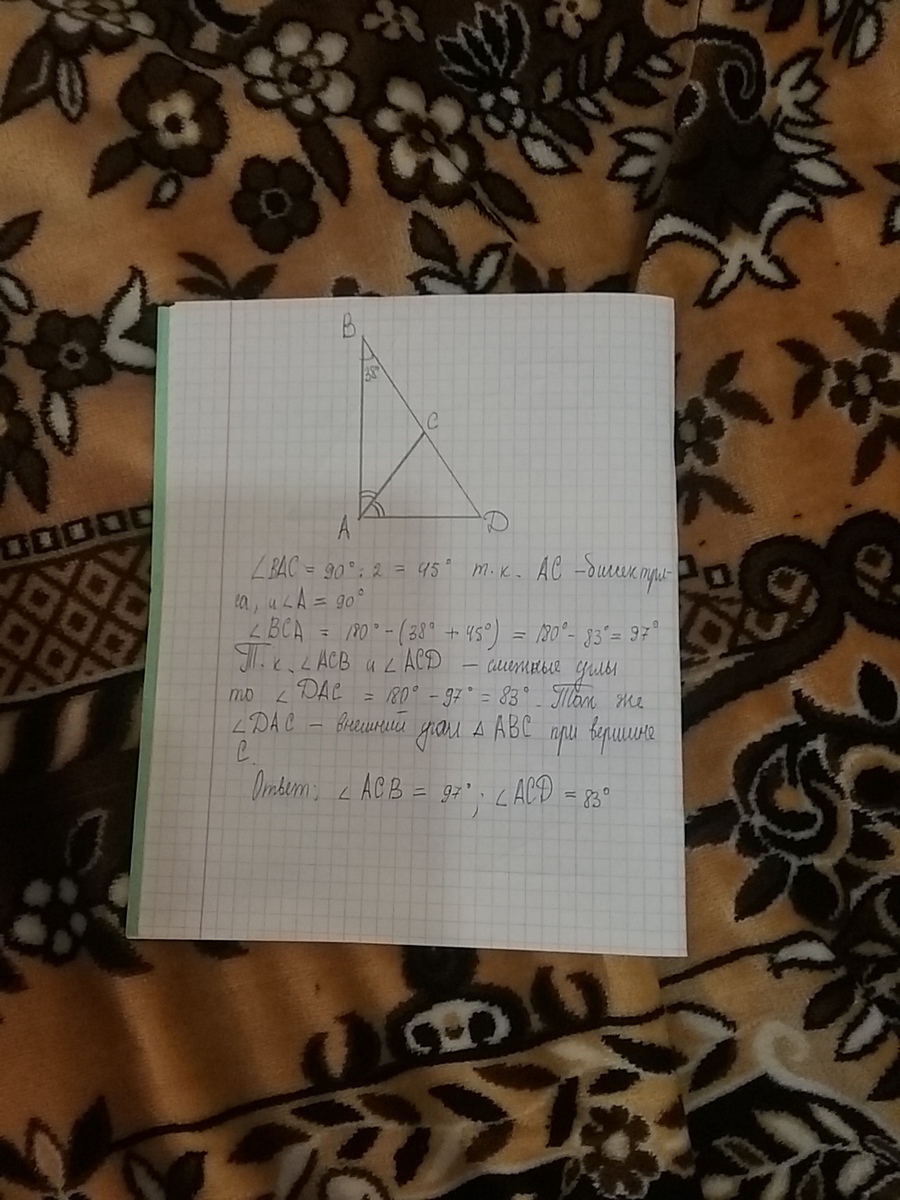 B
38°
C
A
D
∠BAC = 90° : 2 = 45° т.к. AC - биссектри-
са, и ∠A = 90°
∠BCA = 180° - (38° + 45°) = 180° - 83° = 97°
Т.к. ∠ACB и ∠ACD - смежные углы
то ∠DAC = 180° - 97° = 83°. Так же
∠DAC - внешний угол △ABC при вершине
C.
Ответ: ∠ACB = 97°; ∠ACD = 83°